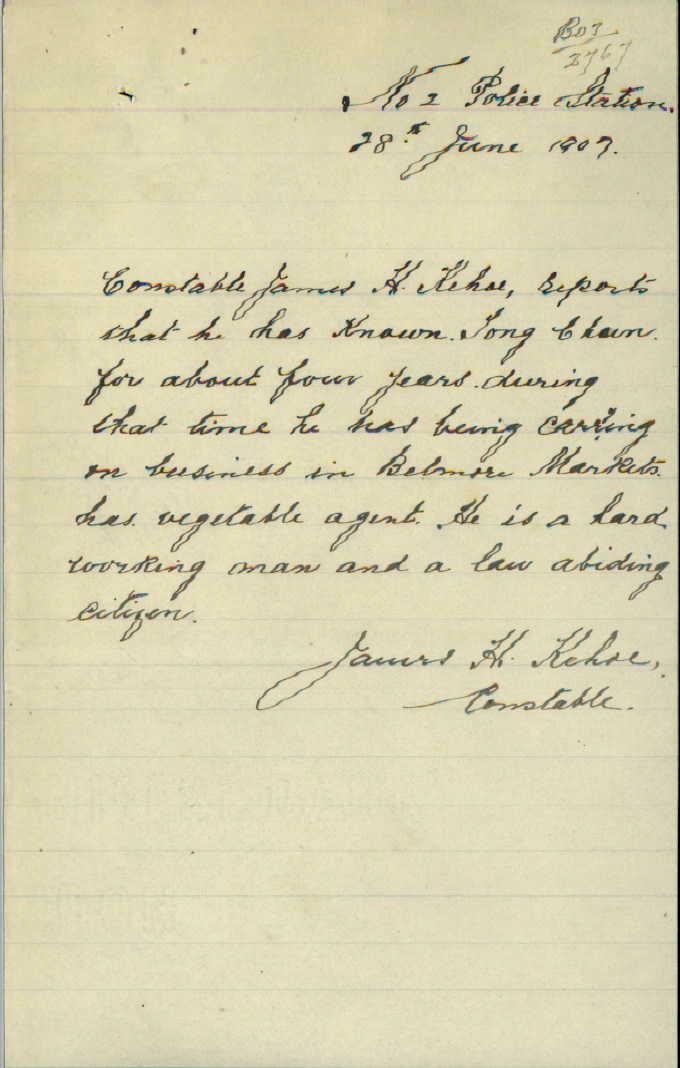 B03
3767
No 2 Police Station.
28th June 1903.
Constable James H. Kehoe, reports
that he has Known. Tong Chun.
for about four years. during
that time he has being carrying
on business in Belmore Markets.
has. vegetable agent. He is a hard
working man and a law abiding
citizen.
James H. Kehoe,
Constable.